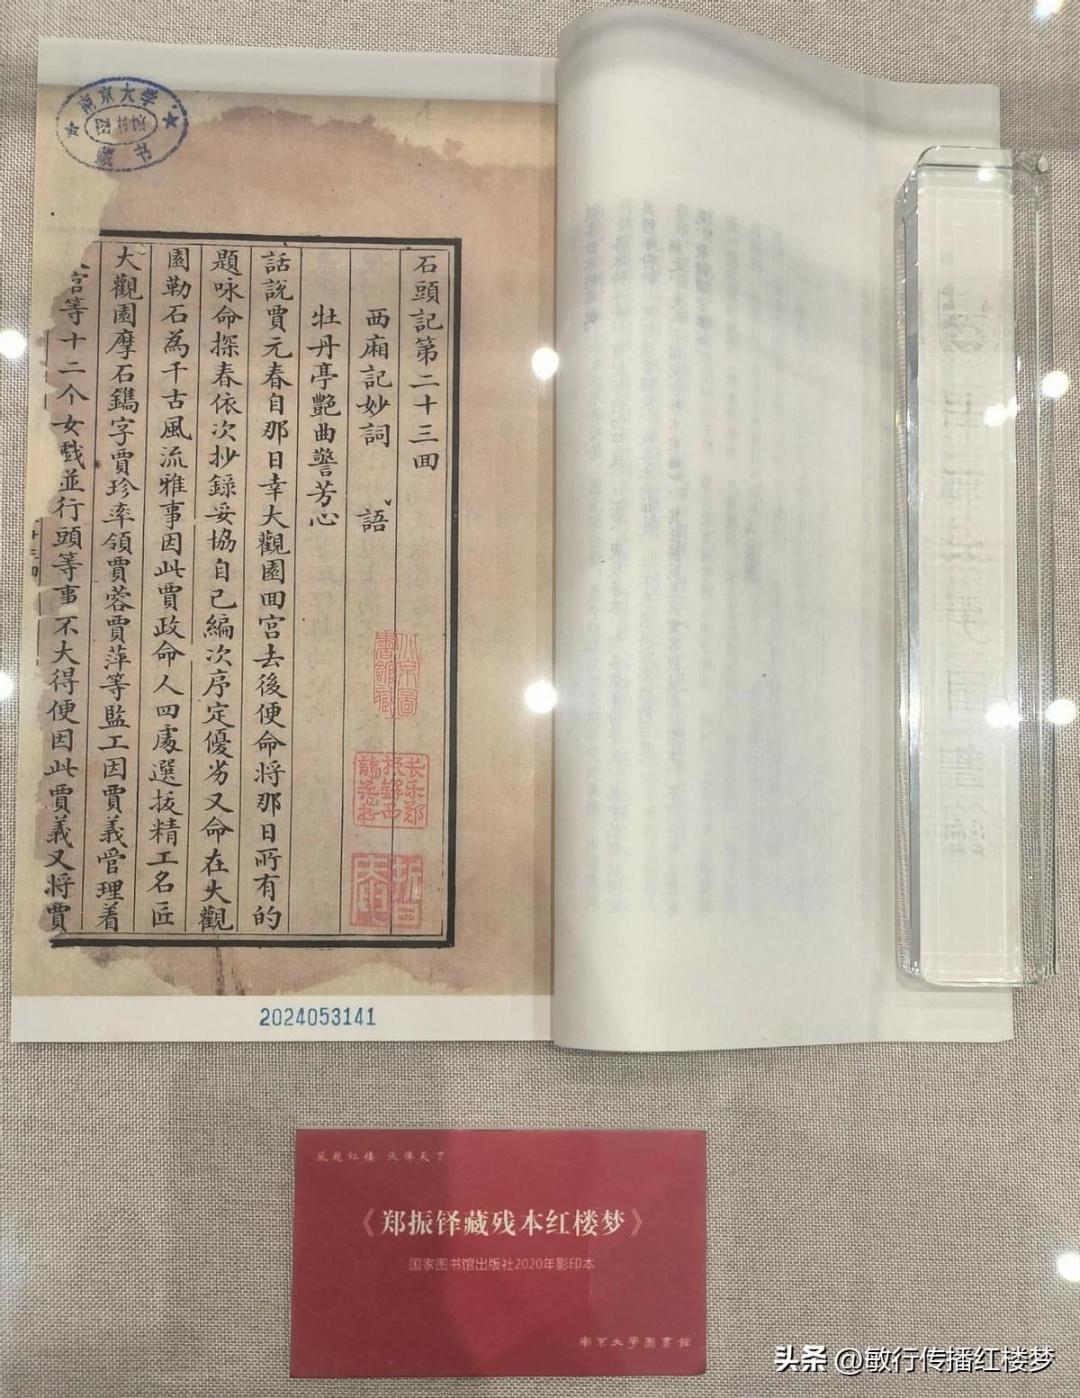 南京大学
藏书
石頭記第二十三回
西廂記妙詞
語
牡丹亭艷曲警芳心
話說賈元春自那日幸大觀園回宮去後便命將那日所有的
題咏命探春依次抄錄妥協自己編次序定優劣又命在大觀
園勒石為千古風流雅事因此賈政命人四處選拔精工名匠
大觀園摩石鐫字賈珍率領賈蓉賈萍等監工因賈義管理着
官等十二个女戲並行頭等事不大得便因此賈義又将賈
長乐郑
振铎西
諦藏书
2024053141
《郑振铎藏残本红楼梦》
国家图书馆出版社2020年影印本
南京大學圖書館
头条 @敏行传播红楼梦